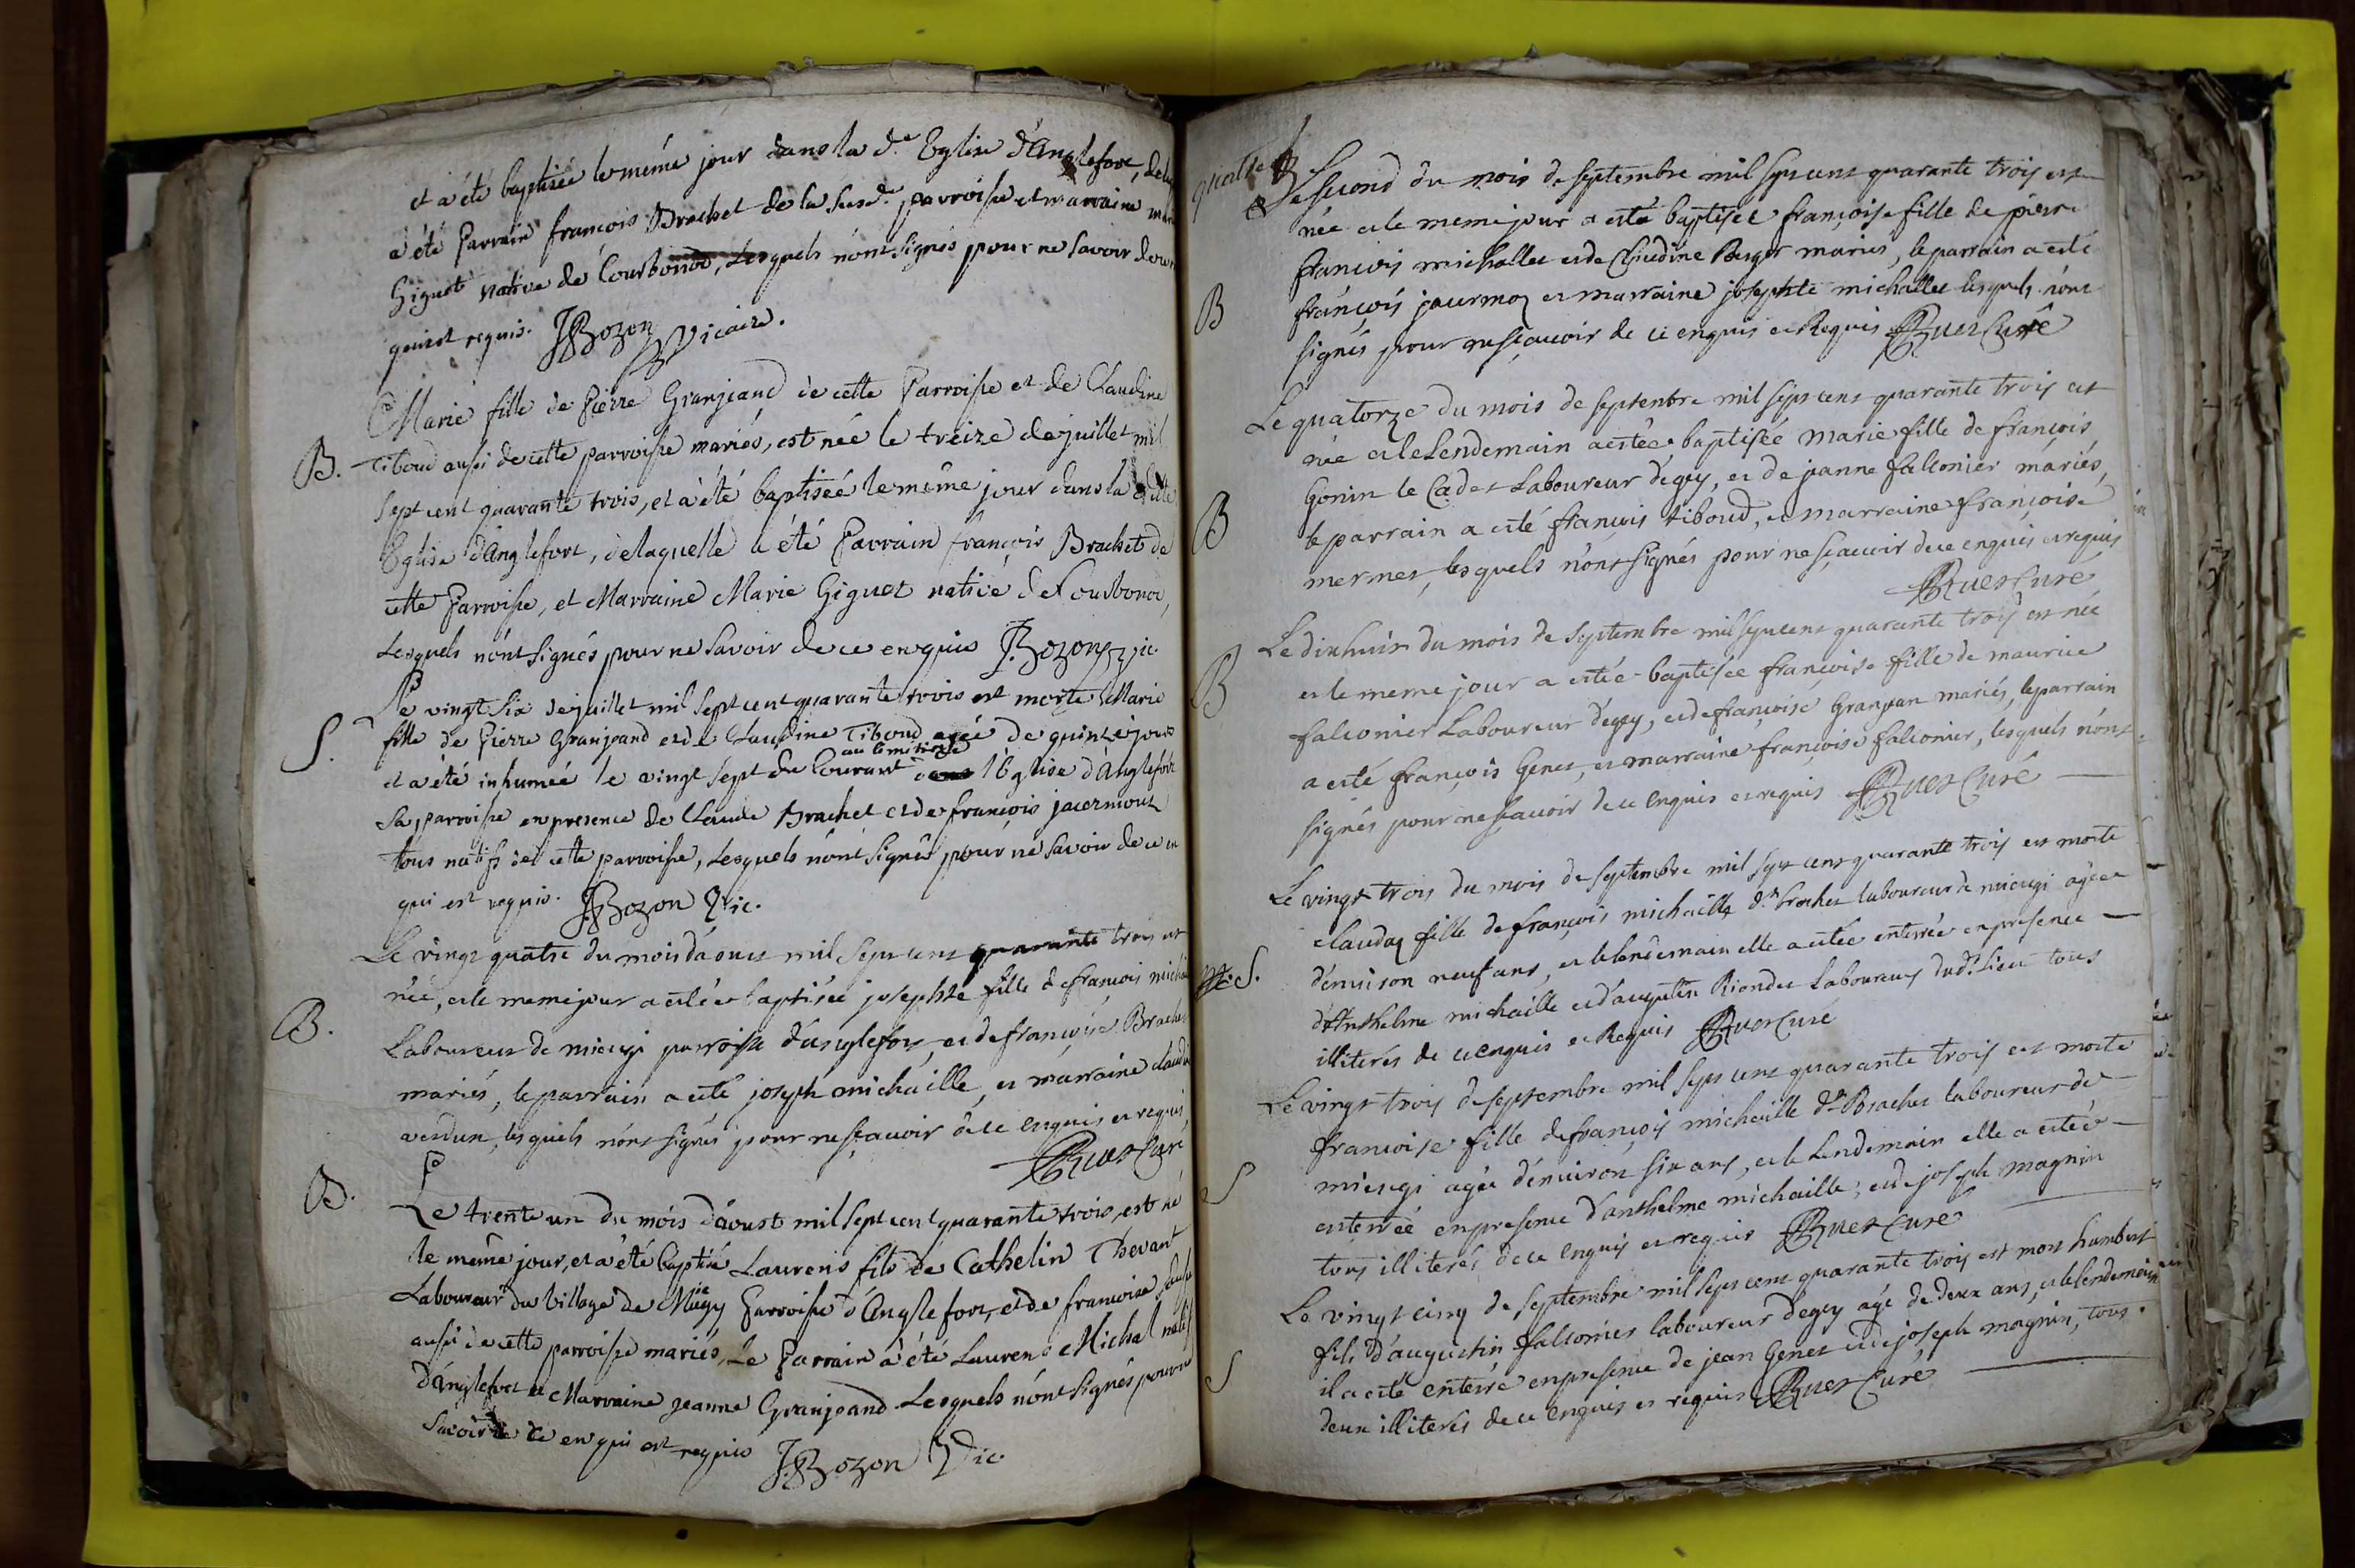 et a été baptisée le même jour dans la d.e Eglise d'Anglefort,
a été Parrain francois Brachet de la sus d.e parroisse et marraine
Giguet native de Courbonod, Lesquels n'ont signés pour ne savoir de ce en
qui est requis. JBozon Vicaire.
Marie fille de Pierre Granjeand de cette Parroisse et de Claudine
B. Tiboud aussi de cette parroisse mariés, est née le treize de juillet mil
sept cent quarante trois, et a été baptiseé le même jour dans la ditte
Eglise d'Anglefort, de laquelle a été Parrain françois Brachet de
cette Parroisse, et Marraine Marie Giguet native de Courbonod,
Lesquels n'ont signés pour ne savoir de ce enquis JBozon vic.
Le vingt six de juillet mil sept cent quarante trois est morte Marie
S. fille de Pierre Granjeand et de Claudine Tiboud agée de quinze jours
au cimetiere de
et a été inhumeé le vingt sept du Courant l'Eglise d'Anglefort
sa parroisse en presence de Claude Brachet et de françois jacermoux
tous natifs de cette parroisse, Lesquels n'ont signés pour ne savoir de ce en
qui est requis. JBozon Vic.
Le vingt quatre du mois d'aoust mil sept cent quarante trois est
née, et le meme jour a estée baptisée josephte fille de francois
B. Laboureur de mieugi parroisse d'anglefort, et de françoise Brachet
mariés, le parrain a esté joseph michaille, et marraine
verdun, lesquels n'ont signés pour ne sçavoir de ce enquis et requis
Ruet Curé
B. Le trente un du mois d'avoust mil sept cent quarante trois, est né
le même jour, et a été baptisé Laurens fils de Cathelin Thevant
Laboureur du Village de Miugy Parroisse d'Anglefort, et de francoise
aussi de cette parroisse mariés, Le Parrain a été Laurens Michal natif
d'Anglefort et Marraine jeanne Granjeand Lesquels n'ont signés pour ne
savoir de ce en qui est requis JBozon Vic.
Le second du mois de septembre mil sept cent quarante trois est
née et le meme jour a estée baptisée françoise fille de pierre
francois michallet et de Claudine Berger mariés, le parrain a esté
B françois jacermoz et marraine josephte michallet lesquels n'ont
signés pour ne sçavoir de ce enquis et Requis Ruet Curé
Le quatorze du mois de septembre mil sept cent quarante trois est
née et le Lendemain a estée baptisée marie fille de françois
Gonin le Cadet Laboureur d'egey, et de jeanne falconier mariés,
B le parrain a esté françois tiboud, et marraine françoise
mermet, lesquels n'ont signés pour ne sçavoir de ce enquis et requis
Ruet Curé
Le dixhuit du mois de septembre mil sept cent quarante trois est née
B et le meme jour a estée baptisée françoise fille de maurice
falconier Laboureur d'egey, et de françoise Granjean mariés, le parrain
a esté françois Genet, et marraine françoise falconier, lesquels n'ont
signés pour ne sçavoir de ce enquis et requis Ruet Curé
Le vingt trois du mois de septembre mil sept cent quarante trois est morte
claudaz fille de françois michaille d.t brachet laboureur de mieugi agée
S. d'environ neuf ans, et le lendemain elle a estée enterrée en presence
d'Anthelme michaille et d'augustin Riondet Laboureurs dud.t lieu tous
illiterés de ce enquis et Requis Ruet Curé
Le vingt trois de septembre mil sept cent quarante trois est morte
françoise fille de françois michaille d.t Brachet laboureur de
mieugi agée d'environ six ans, et le Lendemain elle a estée
S enterrée en presence d'anthelme michaille, et de joseph magnin
tous illiterés de ce enquis et requis Ruet Curé
Le vingt cinq de septembre mil sept cent quarante trois est mort humbert
fils d'augustin falconier laboureur d'egey agé de deux ans, et le lendemain
S il a esté enterré en presence de jean Genet et de joseph magnin, tous
deux illiterés de ce enquis et requis Ruet Curé